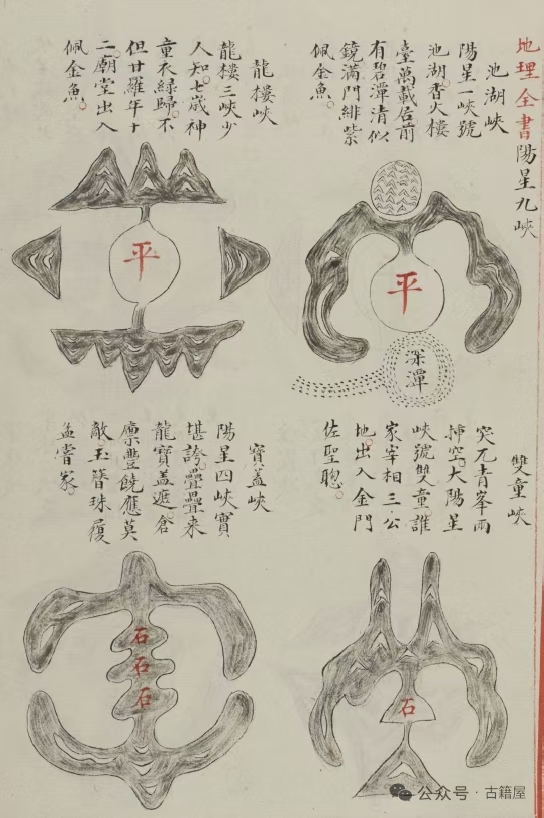 地理全書陽星九峽
池湖峽
陽星一峽號
池湖香火樓
臺萬載居前
有碧潭清似
鏡滿門緋紫
佩金魚。
平
深潭
龍樓峽
龍樓三峽少
人知七歲神
童衣綠歸。不
但甘羅年十
二。廟堂出入
佩金魚。
平
雙童峽
突兀青峯兩
挿空。大陽星
峽號雙童。誰
家宰相三公
地。出入金門
佐聖聰。
石
寶蓋峽
陽星四峽寶
堪誇。疊疊來
龍寶蓋遮。倉
廩豐饒應莫
敵。玉簪珠履
孟嘗家。
石
石
石
公众号·古籍屋